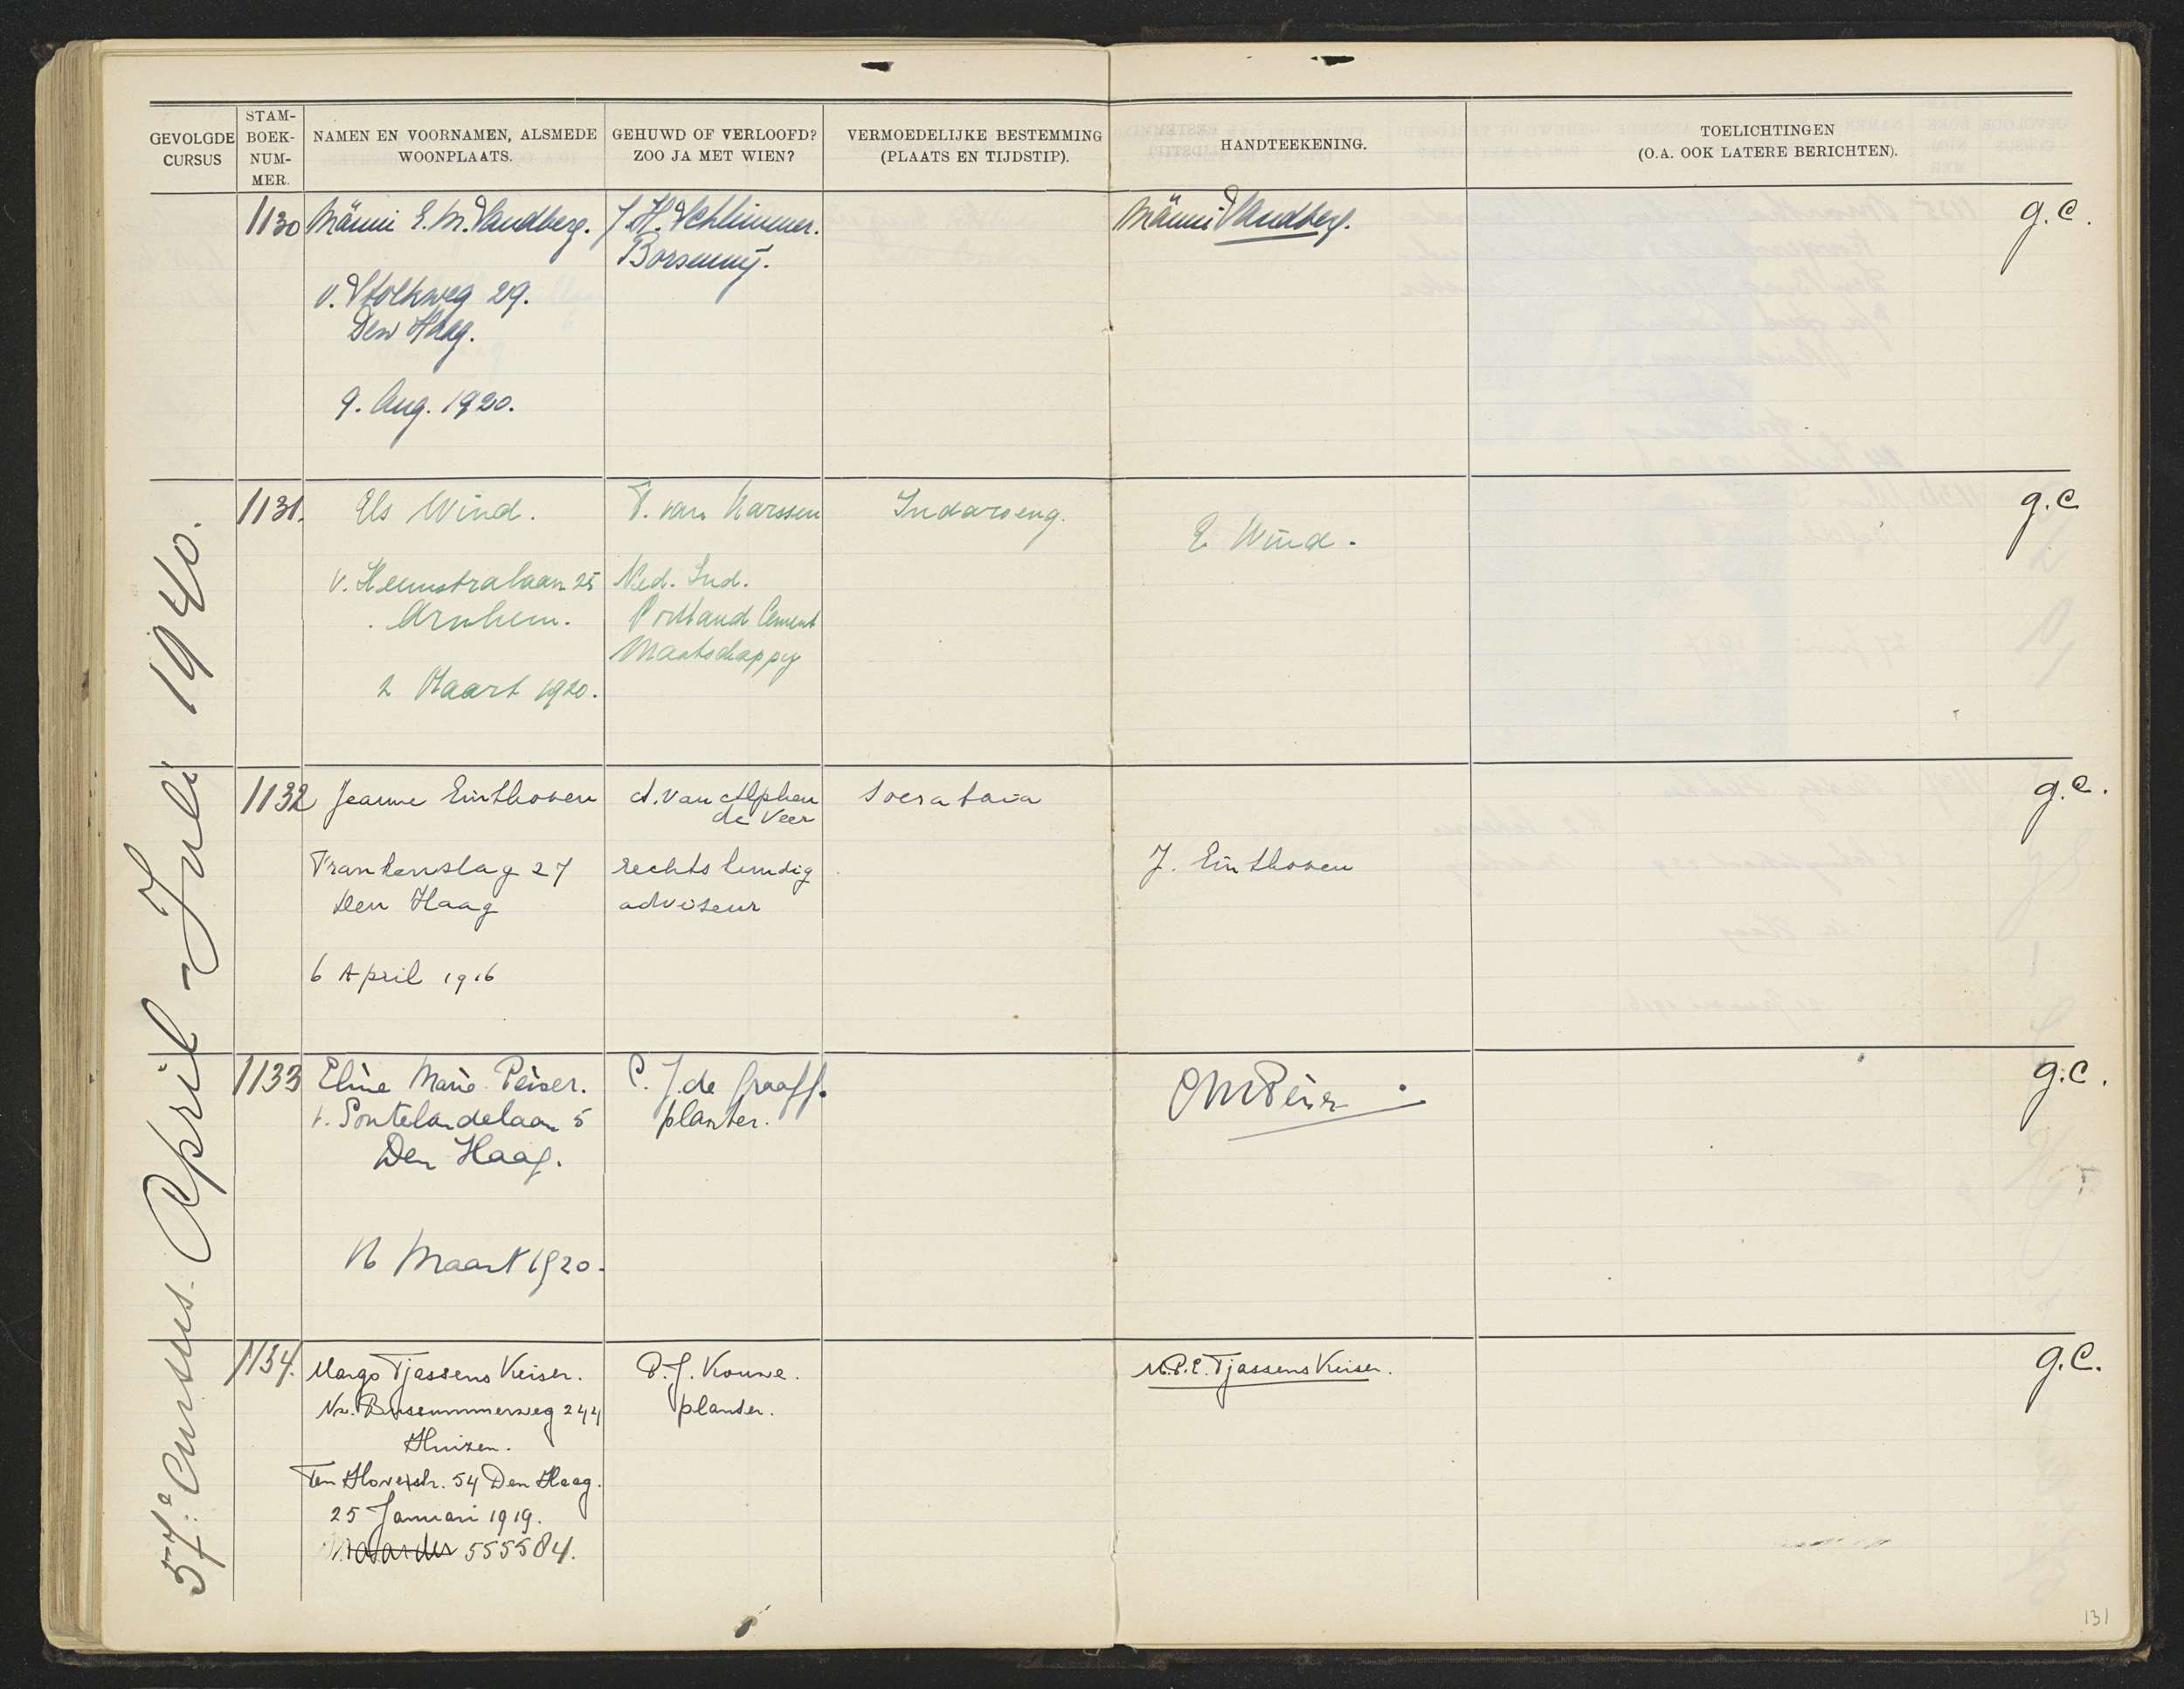 GEVOLGDE CURSUS
STAM-BOEK-NUM-MER.
NAMEN EN VOORNAMEN, ALSMEDE WOONPLAATS.
GEHUWD OF VERLOOFD? ZOO JA MET WIEN?
VERMOEDELIJKE BESTEMMING (PLAATS EN TIJDSTIP).
HANDTEEKENING.
TOELICHTINGEN (O.A. OOK LATERE BERICHTEN).
57e Cursus. April - Juli 1940.
1130
Männi E. M. Sandberg.
v. Stolkweg 29.
Den Haag.
9. Aug. 1920.
J. H. Schlimmer.
Borsumij.
Männi Sandberg.
g.c.
1131.
Els Wind.
v. Heemstralaan 25
Arnhem.
2 Maart 1920.
P. van Karssen
Ned. Ind.
Portland Cement
Maatschappij
Indaroeng.
E. Wind.
g.c
1132
Jeanne Einthoven
Frankenslag 27
Den Haag
6 April 1916
A. van Alphen
de Veer
rechtskundig
adviseur
Soerabaia
J. Einthoven
g.c.
1133
Eline Marie Peiser.
v. Soutelandelaan 5
Den Haag.
16 Maart 1920.
C. J. de Graaff.
planter.
EMPeiser
g.c.
1134.
Margo Tjassens Keiser.
Nw. Bussummerweg 244
Huizen.
Ten Hovestr. 54 Den Haag.
25 Januari 1919.
555584.
P. J. Kouwe.
planter.
M.P.E. Tjassens Keiser.
g.c.
131